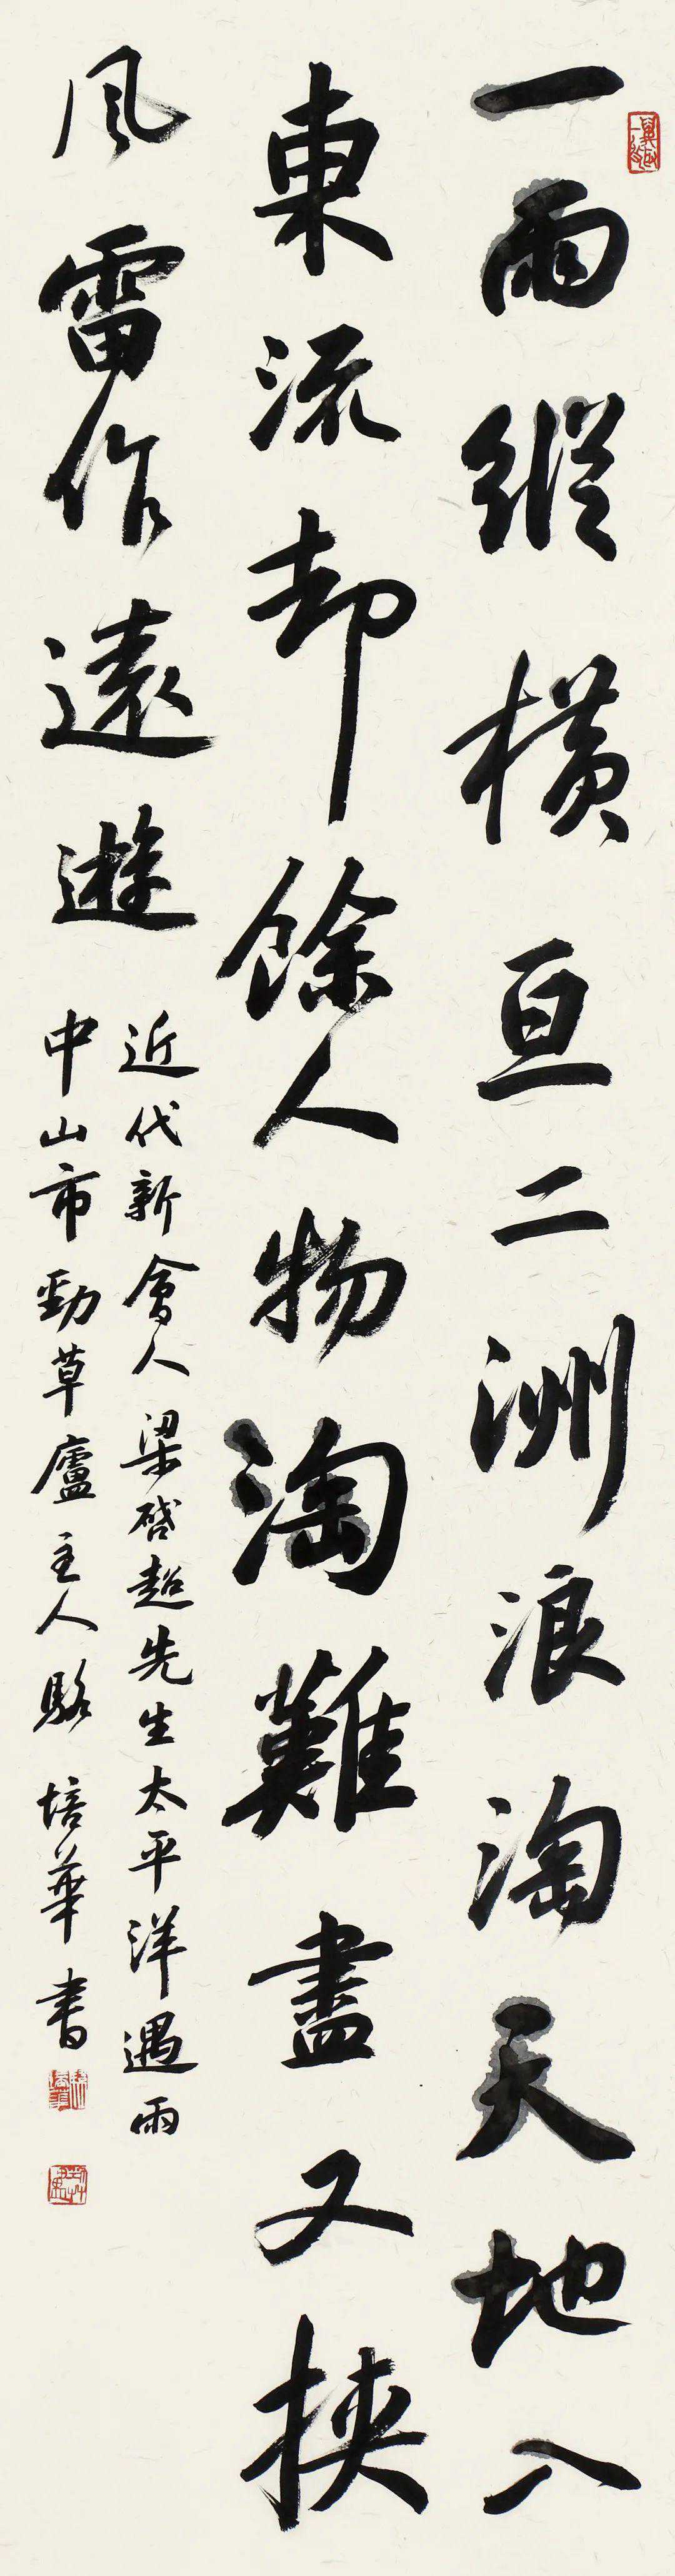 一雨縱橫亘二洲浪淘天地入
東流却餘人物淘難盡又挾
風雷作遠遊
近代新會人梁啓超先生太平洋遇雨
中山市勁草廬主人駱培華書